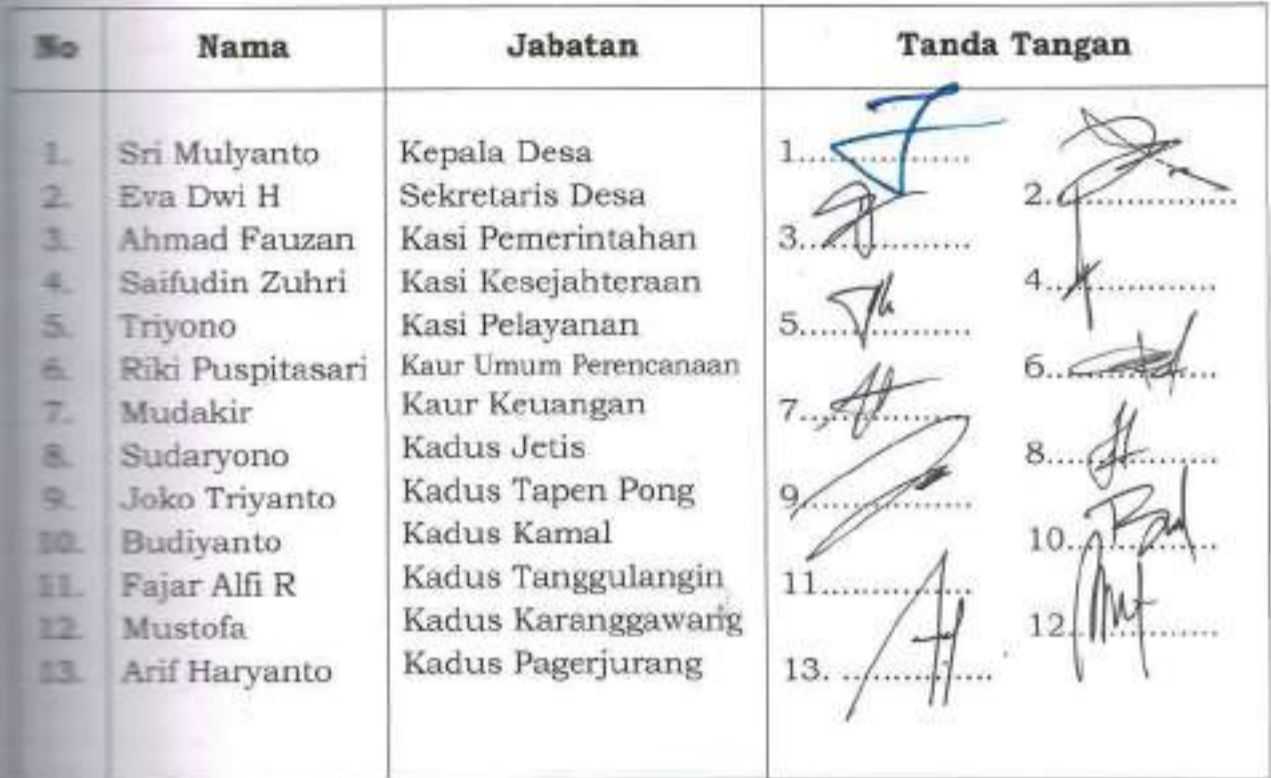 No Nama Jabatan Tanda Tangan
1. Sri Mulyanto Kepala Desa 1...............
2. Eva Dwi H Sekretaris Desa 2...............
3. Ahmad Fauzan Kasi Pemerintahan 3...............
4. Saifudin Zuhri Kasi Kesejahteraan 4...............
5. Triyono Kasi Pelayanan 5...............
6. Riki Puspitasari Kaur Umum Perencanaan 6...............
7. Mudakir Kaur Keuangan 7...............
8. Sudaryono Kadus Jetis 8...............
9. Joko Triyanto Kadus Tapen Pong 9...............
10. Budiyanto Kadus Kamal 10...............
11. Fajar Alfi R Kadus Tanggulangin 11...............
12. Mustofa Kadus Karanggawang 12...............
13. Arif Haryanto Kadus Pagerjurang 13. ...............